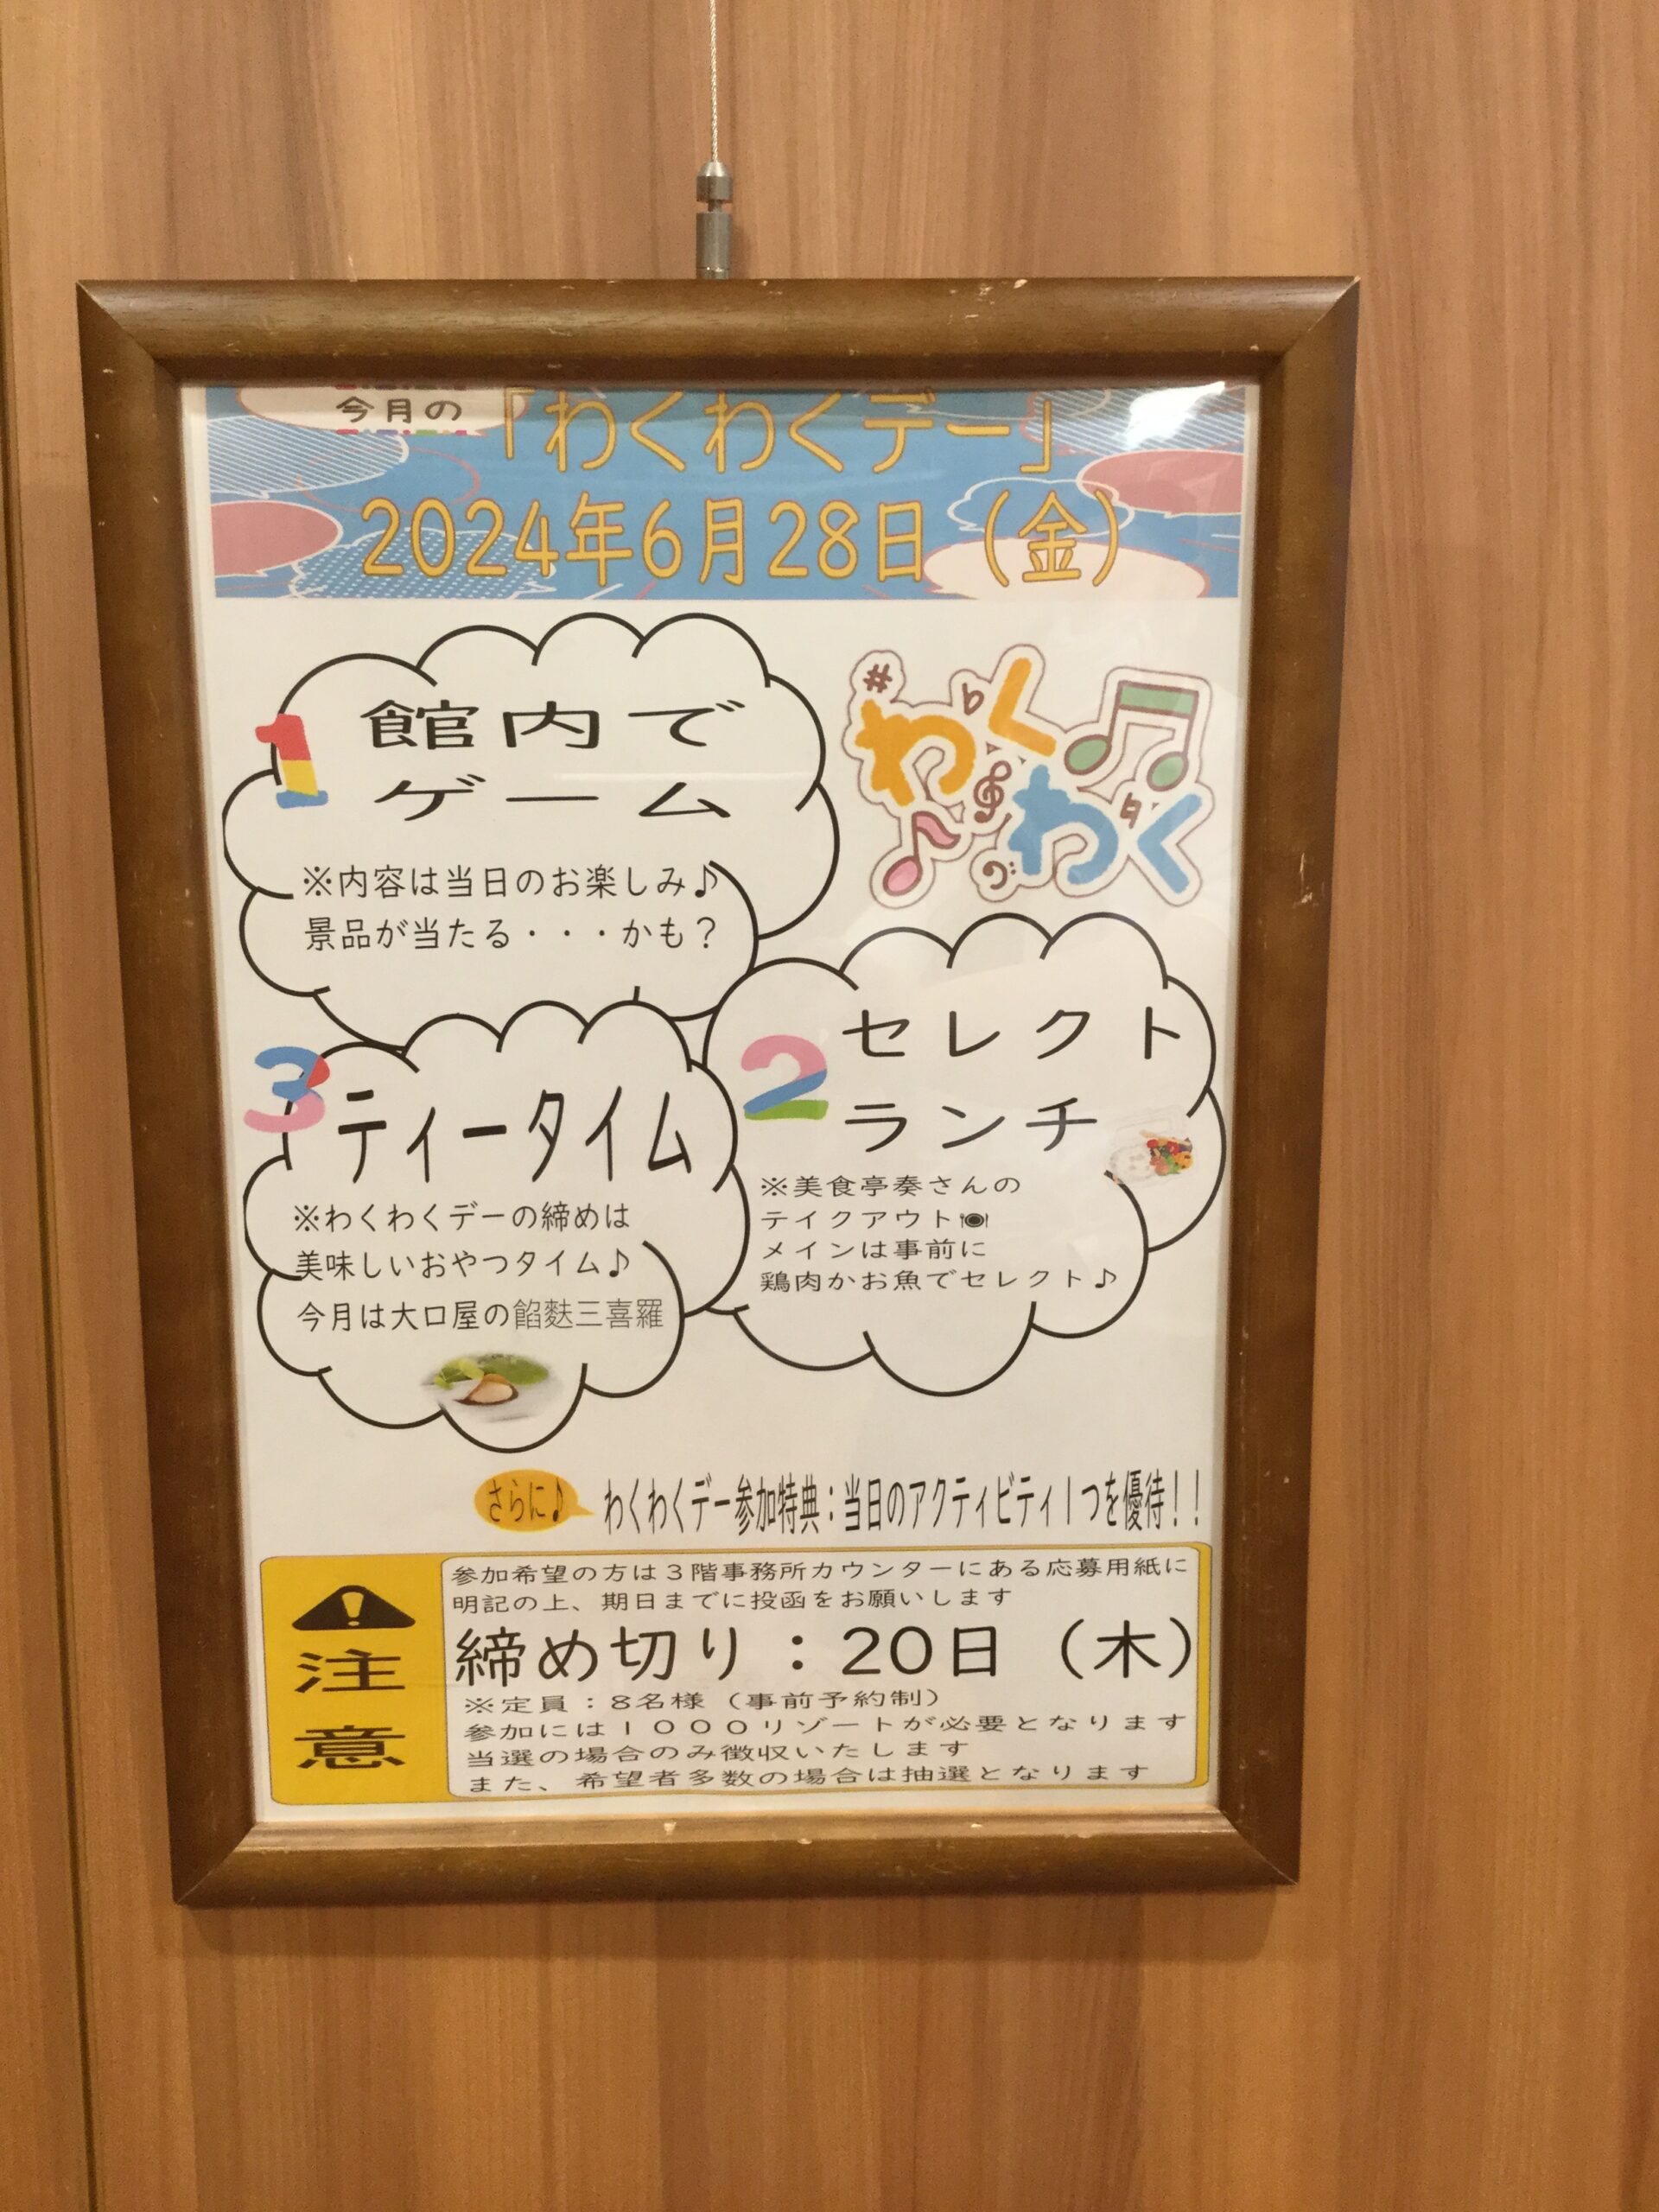 今月の
「わくわくデー」
2024年6月28日（金）
1
館内で
ゲーム
※内容は当日のお楽しみ♪
景品が当たる・・・かも？
わく
わく
2
セレクト
ランチ
※美食亭奏さんの
テイクアウト🍽
メインは事前に
鶏肉かお魚でセレクト♪
3
ティータイム
※わくわくデーの締めは
美味しいおやつタイム♪
今月は大口屋の餡麩三喜羅
さらに♪
わくわくデー参加特典：当日のアクティビティ1つを優待！！
注意
参加希望の方は３階事務所カウンターにある応募用紙に
明記の上、期日までに投函をお願いします
締め切り：20日（木）
※定員：8名様（事前予約制）
参加には１０００リゾートが必要となります
当選の場合のみ徴収いたします
また、希望者多数の場合は抽選となります